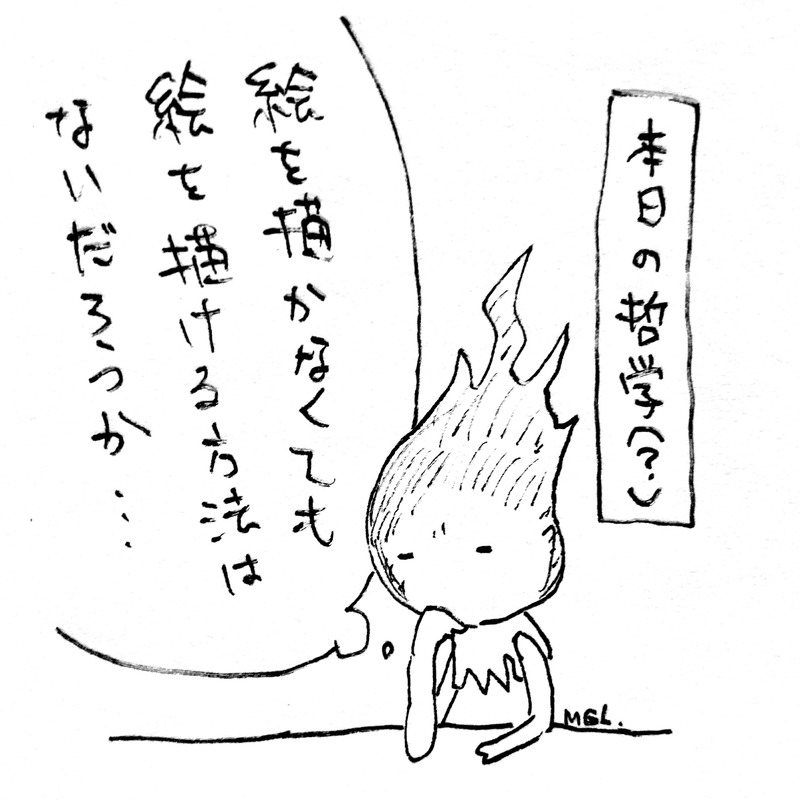 本日の哲学(?)
絵を描かなくても
絵を描ける方法は
ないだろうか…
MGL.